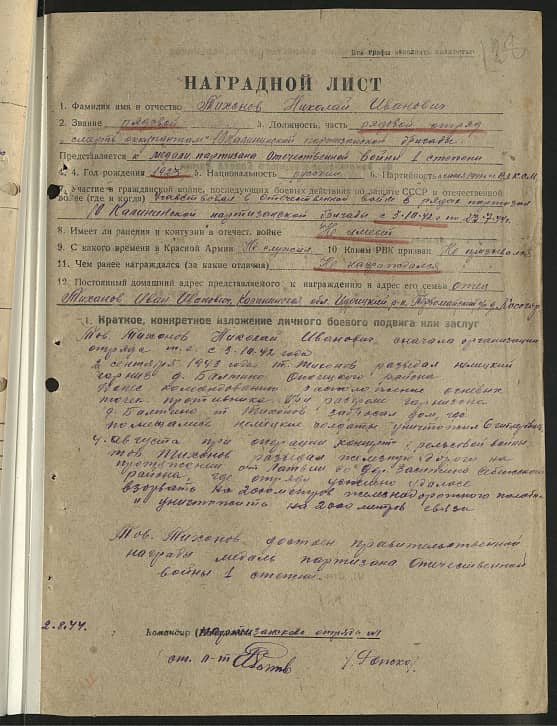 Все графы заполнять полностью
128
НАГРАДНОЙ ЛИСТ
1. Фамилия имя и отчество Тихонов Николай Иванович
2. Звание рядовой 3. Должность, часть рядовой отряд
смерть оккупантам 10 Калининской партизанской бригады
Представляется к медали партизана Отечественной войны 1 степени
4. Год рождения 1927 5. Национальность русский 6. Партийность ВЛКСМ
7. Участие в гражданской войне, последующих боевых действиях по защите СССР и отечественной
войне (где и когда) Участвовал в Отечественной войне в рядах партизан
10 Калининской партизанской бригады с 3-10-42 г. по 27.7.44 г.
8. Имеет ли ранения и контузии в отечест. войне Не имеет
9. С какого времени в Красной Армии Не служил 10. Каким РВК призван Не призывался
11. Чем ранее награждался (за какие отличия) Не награждался
12. Постоянный домашний адрес представляемого к награждению и адрес его семьи отец
Тихонов Иван Иванович, Калининская обл. р-н,
1. Краткое, конкретное изложение личного боевого подвига или заслуг
Тов. Тихонов Николай Иванович, сначала организации
отряда т.е. с 3-10-42 года
2 сентября 1943 года т. Тихонов разведал немецкий
гарнизон д. Балтино Опочецкого района
командованию расположение огневых
точек противника. При разгроме гарнизона
д. Балтино т. Тихонов забросал дом, где
помещались немецкие солдаты уничтожил 6
4 августа при операции концерт, рельсовой войны
тов Тихонов разведал железную дорогу на
протяжении от Латвии до дер. Себежского
района, где отряду удалось
взорвать на 2000 метров железнодорожного полотна
и уничтожить на 2000 метров связи
Тов. Тихонов достоин правительственной
награды медаль партизана Отечественной
войны 1 степени.
2.8.44.
Командир партизанского отряда №1
ст. л-т